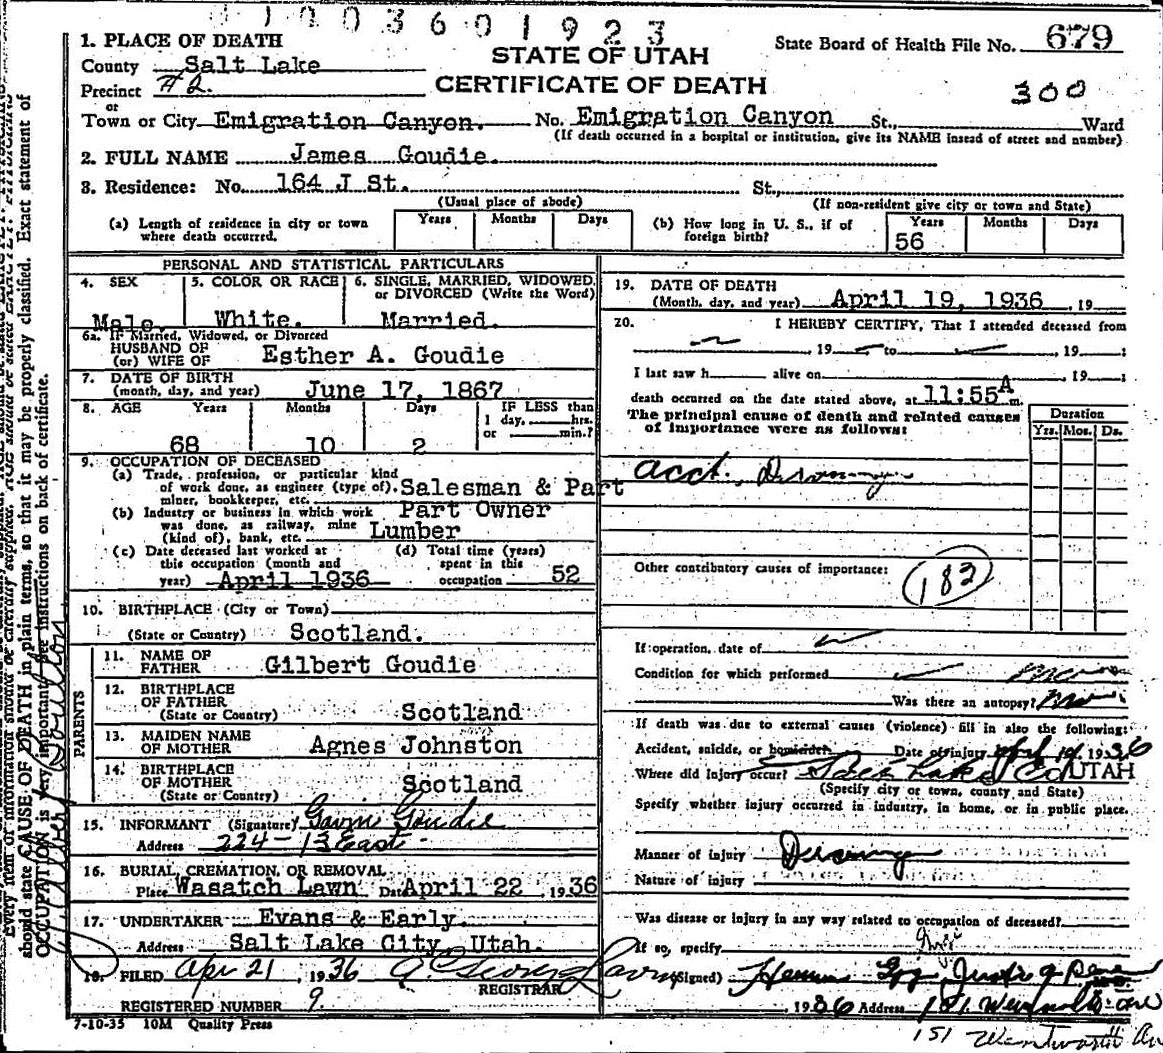 1003601923
STATE OF UTAH
CERTIFICATE OF DEATH
State Board of Health File No. 679
300
1. PLACE OF DEATH
County Salt Lake
Precinct #2.
or
Town or City Emigration Canyon. No. Emigration Canyon St., Ward
(If death occurred in a hospital or institution, give its NAME insead of street and number)
2. FULL NAME James Goudie.
3. Residence: No. 164 J St. St.,
(Usual place of abode) (If non-resident give city or town and State)
(a) Length of residence in city or town where death occurred. Years Months Days
(b) How long in U. S., if of foreign birth? Years 56 Months Days
PERSONAL AND STATISTICAL PARTICULARS
4. SEX Male.
5. COLOR OR RACE White.
6. SINGLE, MARRIED, WIDOWED, or DIVORCED (Write the Word) Married.
6a. If Married, Widowed, or Divorced
HUSBAND OF
(or) WIFE OF Esther A. Goudie
7. DATE OF BIRTH
(month, day, and year) June 17, 1867
8. AGE Years 68 Months 10 Days 2
IF LESS than
1 day, hrs.
or min.?
9. OCCUPATION OF DECEASED
(a) Trade, profession, or particular kind
of work done, as engineer (type of), Salesman & Part
miner, bookkeeper, etc.
(b) Industry or business in which work Part Owner
was done, as railway, mine
(kind of), bank, etc. Lumber
(c) Date deceased last worked at
this occupation (month and
year) April 1936
(d) Total time (years)
spent in this
occupation 52
10. BIRTHPLACE (City or Town)
(State or Country) Scotland.
PARENTS
11. NAME OF
FATHER Gilbert Goudie
12. BIRTHPLACE
OF FATHER
(State or Country) Scotland
13. MAIDEN NAME
OF MOTHER Agnes Johnston
14. BIRTHPLACE
OF MOTHER
(State or Country) Scotland
15. INFORMANT (Signature) Gavin Goudie
Address 224 - 13 East
16. BURIAL, CREMATION, OR REMOVAL
Place Wasatch Lawn Date April 22 1936
17. UNDERTAKER Evans & Early.
Address Salt Lake City, Utah.
18. FILED Apr 21, 1936
REGISTRAR
REGISTERED NUMBER 9.
7-10-35 10M Quality Press
19. DATE OF DEATH
(Month, day, and year) April 19, 1936 , 19
20. I HEREBY CERTIFY, That I attended deceased from
, 19 to , 19 ;
I last saw h alive on , 19 ;
death occurred on the date stated above, at 11:55 A m.
The principal cause of death and related causes
of importance were as follows:
Duration
Yrs. Mos. Ds.
acct. Drowning
Other contributory causes of importance:
183
If operation, date of
Condition for which performed
Was there an autopsy? no
If death was due to external causes (violence) fill in also the following:
Accident, suicide, or homicide? Date of injury April 19, 1936
Where did injury occur? Salt Lake Co UTAH
(Specify city or town, county and State)
Specify whether injury occurred in industry, in home, or in public place.
Manner of injury Drowning
Nature of injury
Was disease or injury in any way related to occupation of deceased?
If so, specify
(Signed) Justice of Peace
, 1936 Address 151 Wentworth Ave
151 Wentworth Av
should state CAUSE OF DEATH in plain terms, so that it may be properly classified. Exact statement of
OCCUPATION is very important. See instructions on back of certificate.